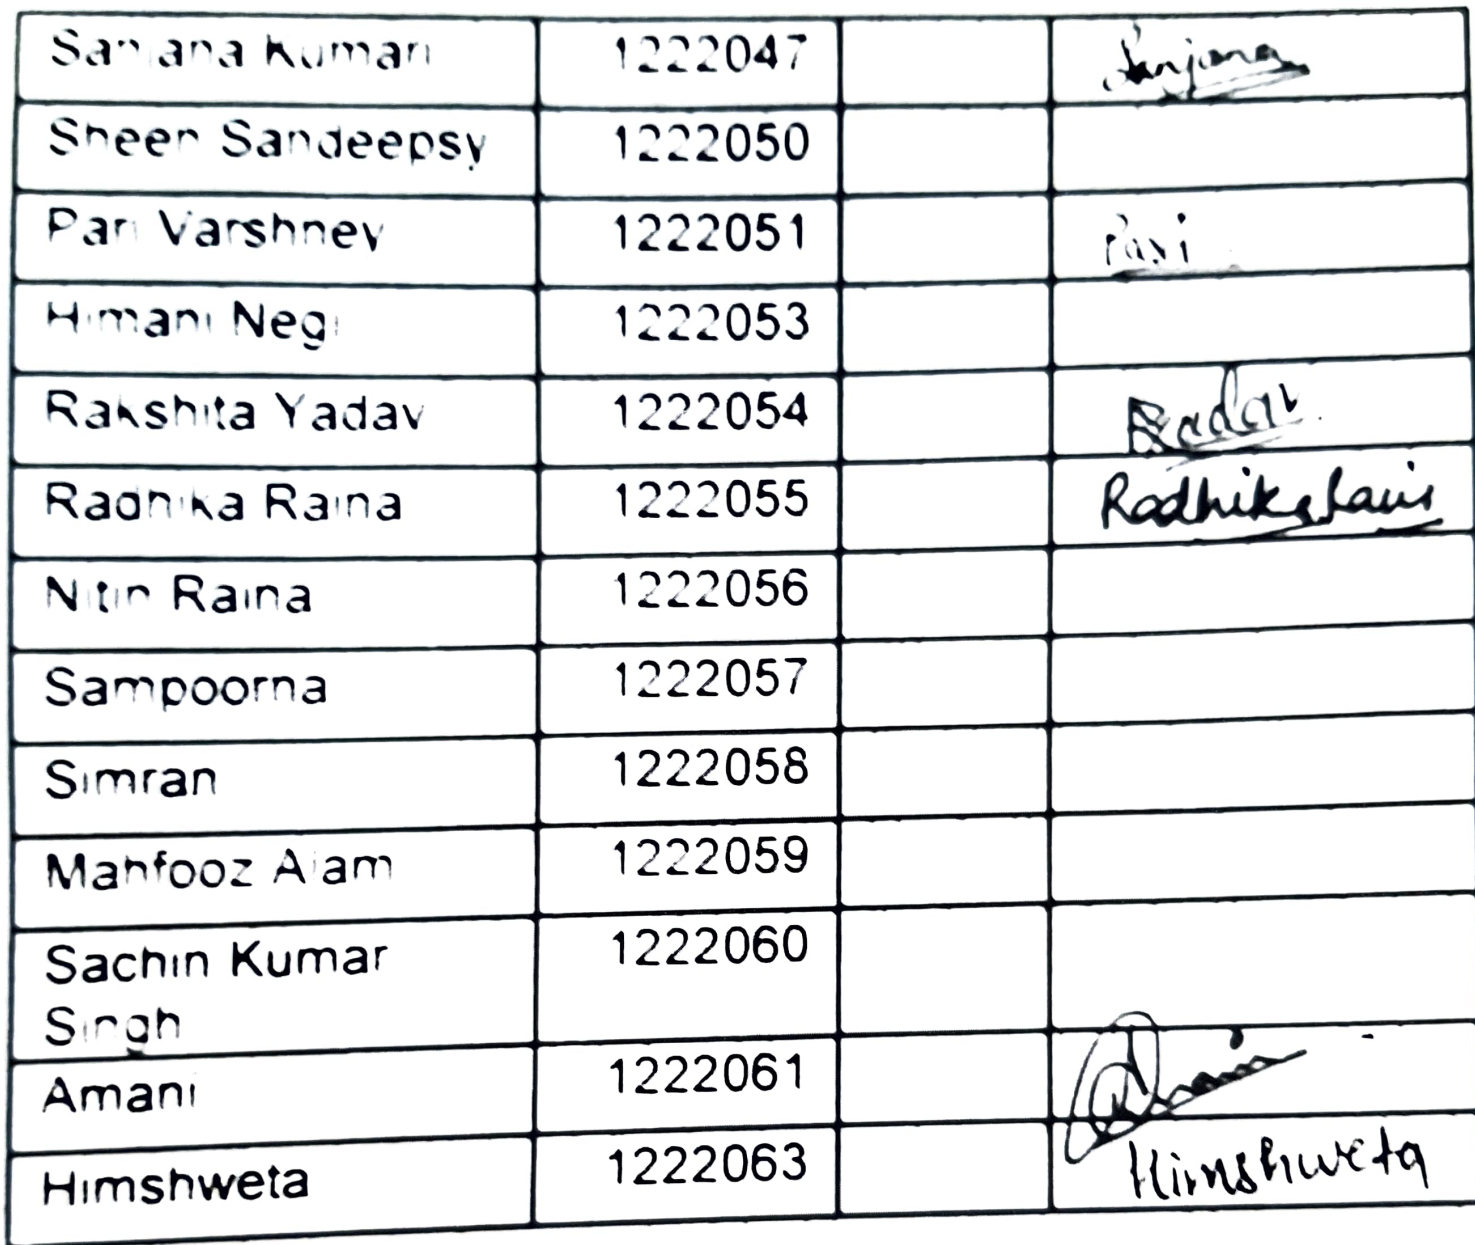 Sanjana Kumari 1222047 Sanjana
Sheen Sandeepsy 1222050
Pari Varshney 1222051 Pari
Himani Negi 1222053
Rakshita Yadav 1222054
Radhika Raina 1222055 Radhika Raina
Nitin Raina 1222056
Sampoorna 1222057
Simran 1222058
Mahfooz Alam 1222059
Sachin Kumar 1222060
Singh
Amani 1222061
Himshweta 1222063 Himshweta